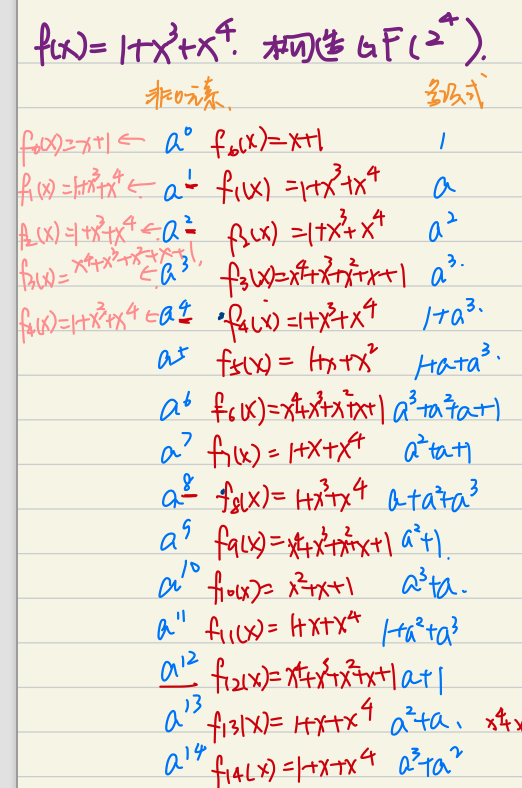 f(x) = 1+x³+x⁴. 构造 GF(2⁴).
非0元素. 多项式
f₀(x)=x+1 ← a⁰ f₀(x)=x+1 1
f₁(x)=1+x³+x⁴ ← a¹ f₁(x) =1+x³+x⁴ a
f₂(x)=1+x³+x⁴ ← a² f₂(x) =1+x³+x⁴ a²
f₃(x)=x⁴+x³+x²+x+1, ← a³ f₃(x)=x⁴+x³+x²+x+1 a³.
f₄(x)=1+x³+x⁴ ← a⁴ f₄(x)=1+x³+x⁴ 1+a³.
a⁵ f₅(x) = 1+x+x² 1+a+a³.
a⁶ f₆(x)=x⁴+x³+x²+x+1 a³+a²+a+1
a⁷ f₇(x) = 1+x+x⁴ a²+a+1
a⁸ f₈(x)= 1+x³+x⁴ a+a²+a³
a⁹ f₉(x)=x⁴+x³+x²+x+1 a²+1.
a¹⁰ f₁₀(x)= x²+x+1 a³+a.
a¹¹ f₁₁(x)= 1+x+x⁴ 1+a²+a³
a¹² f₁₂(x)=x⁴+x³+x²+x+1 a+1
a¹³ f₁₃(x)= 1+x+x⁴ a²+a、 x⁴+x
a¹⁴ f₁₄(x)=1+x+x⁴ a³+a²